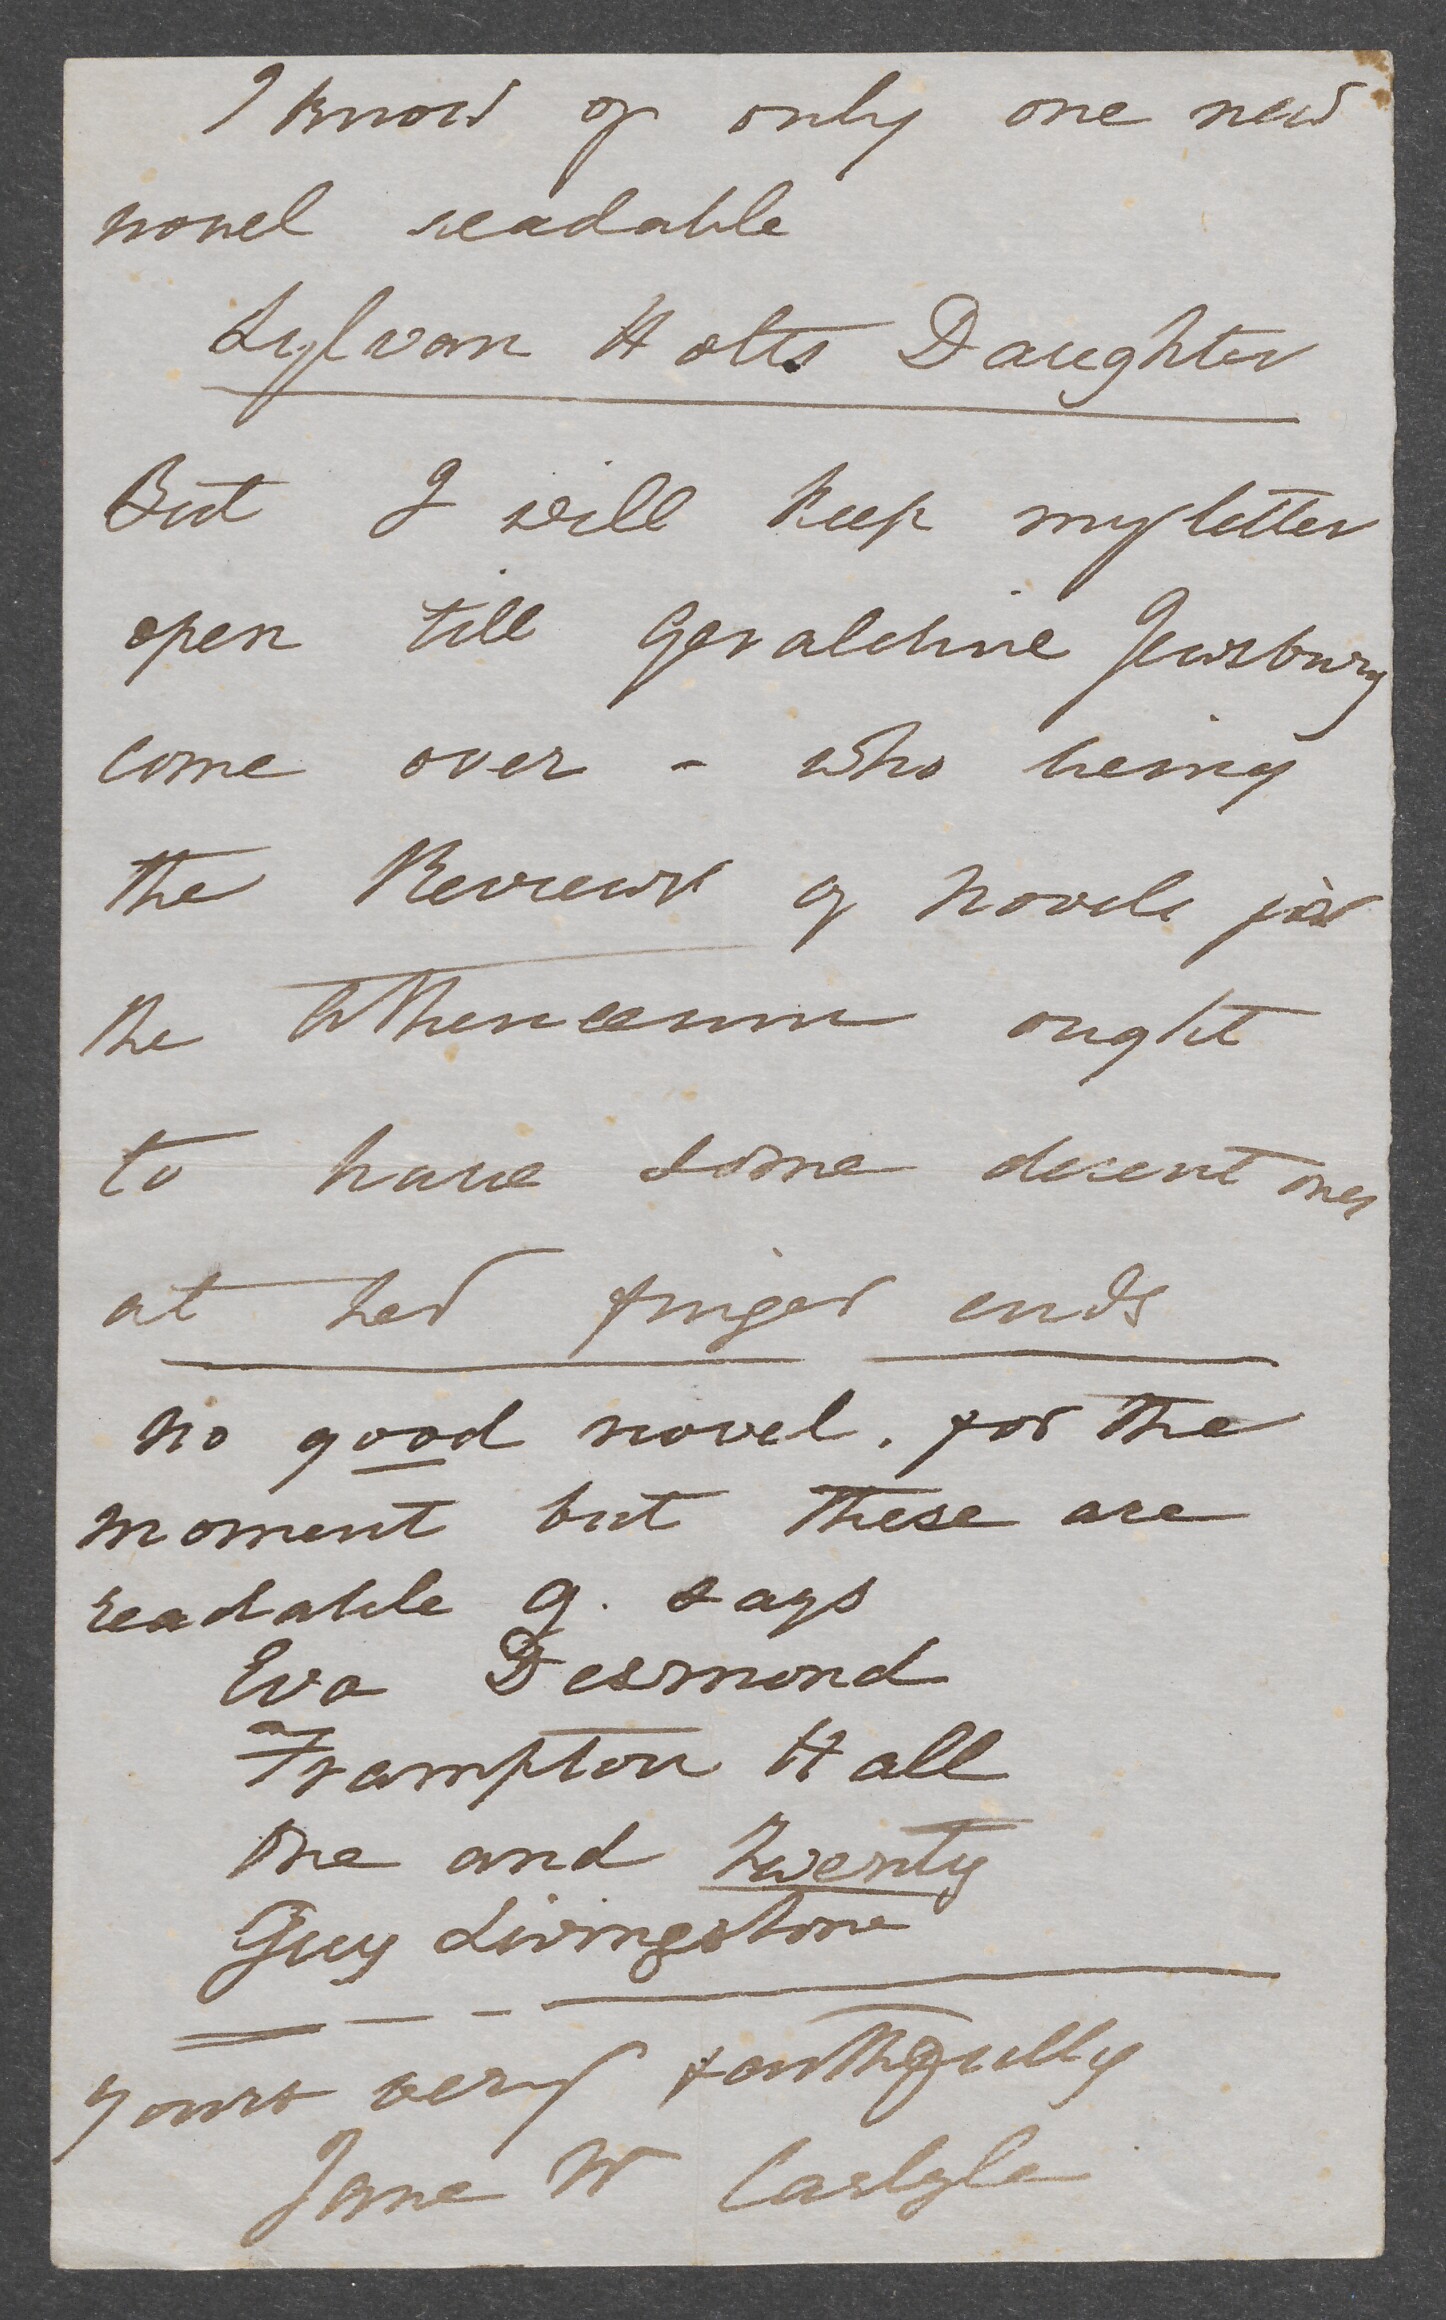 I know of only one new
novel readable
Sylvan Holts Daughter
But I will keep my letter
open till Geraldine Jewsbury
come over - who being
the Reviewer of Novels for
the Athenaeum ought
to have some decent ones
at her finger ends
No good novel. for the
moment but these are
readable G. says
Eva Desmond
Frampton Hall
One and Twenty
Guy Livingstone
yours very faithfully
Jane W Carlyle